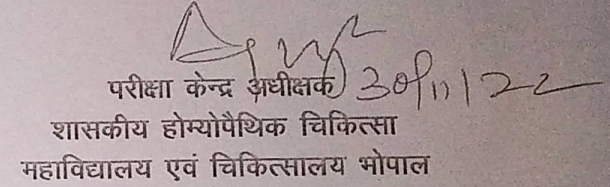 परीक्षा केन्द्र अधीक्षक 30/11/22
शासकीय होम्योपैथिक चिकित्सा
महाविद्यालय एवं चिकित्सालय भोपाल